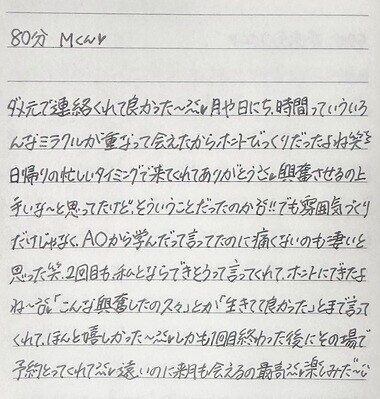 80分 Mくん♥
ダメ元で連絡くれて良かった〜♥月や日にち、時間っていういろ
んなミラクルが重なって会えたからホントびっくりだったよね笑
日帰りの忙しいタイミングで来てくれてありがとう♥興奮させるの上
手いな〜と思ってたけど、そういうことだったのか!!でも雰囲気づくり
だけじゃなく、AOから学んだって言ってたのに痛くないのも凄いと
思った笑、2回目も、私とならできそうって言ってくれて、ホントにできたよ
ね〜「こんな興奮したの久々」とか「生きてて良かった」とまで言って
くれて、ほんと嬉しかった〜♥しかも1回目終わった後にその場で
予約とってくれて♥遠いのに来月も会えるの最高♥楽しみだ〜